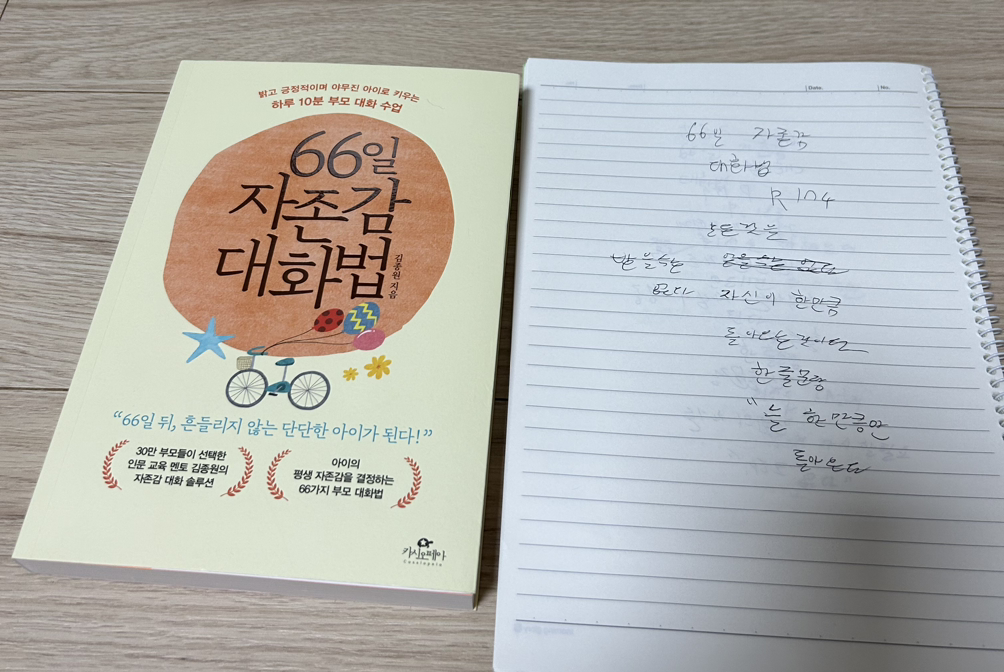 밝고 긍정적이며 야무진 아이로 키우는
하루 10분 부모 대화 수업
66일
자존감
대화법
김종원 지음
“66일 뒤, 흔들리지 않는 단단한 아이가 된다!”
30만 부모들이 선택한
인문 교육 멘토 김종원의
자존감 대화 솔루션
아이의
평생 자존감을 결정하는
66가지 부모 대화법
카시오페아
Cassiopeia
Date.
No.
66일 자존감
대화법
P 104
모든 것은
없다 자신이 한만큼
돌아오는 것이다
한줄문장
"늘 한만큼만
돌아온다